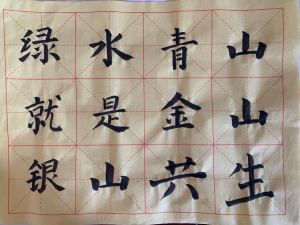 绿水青山
就是金山
银山共生